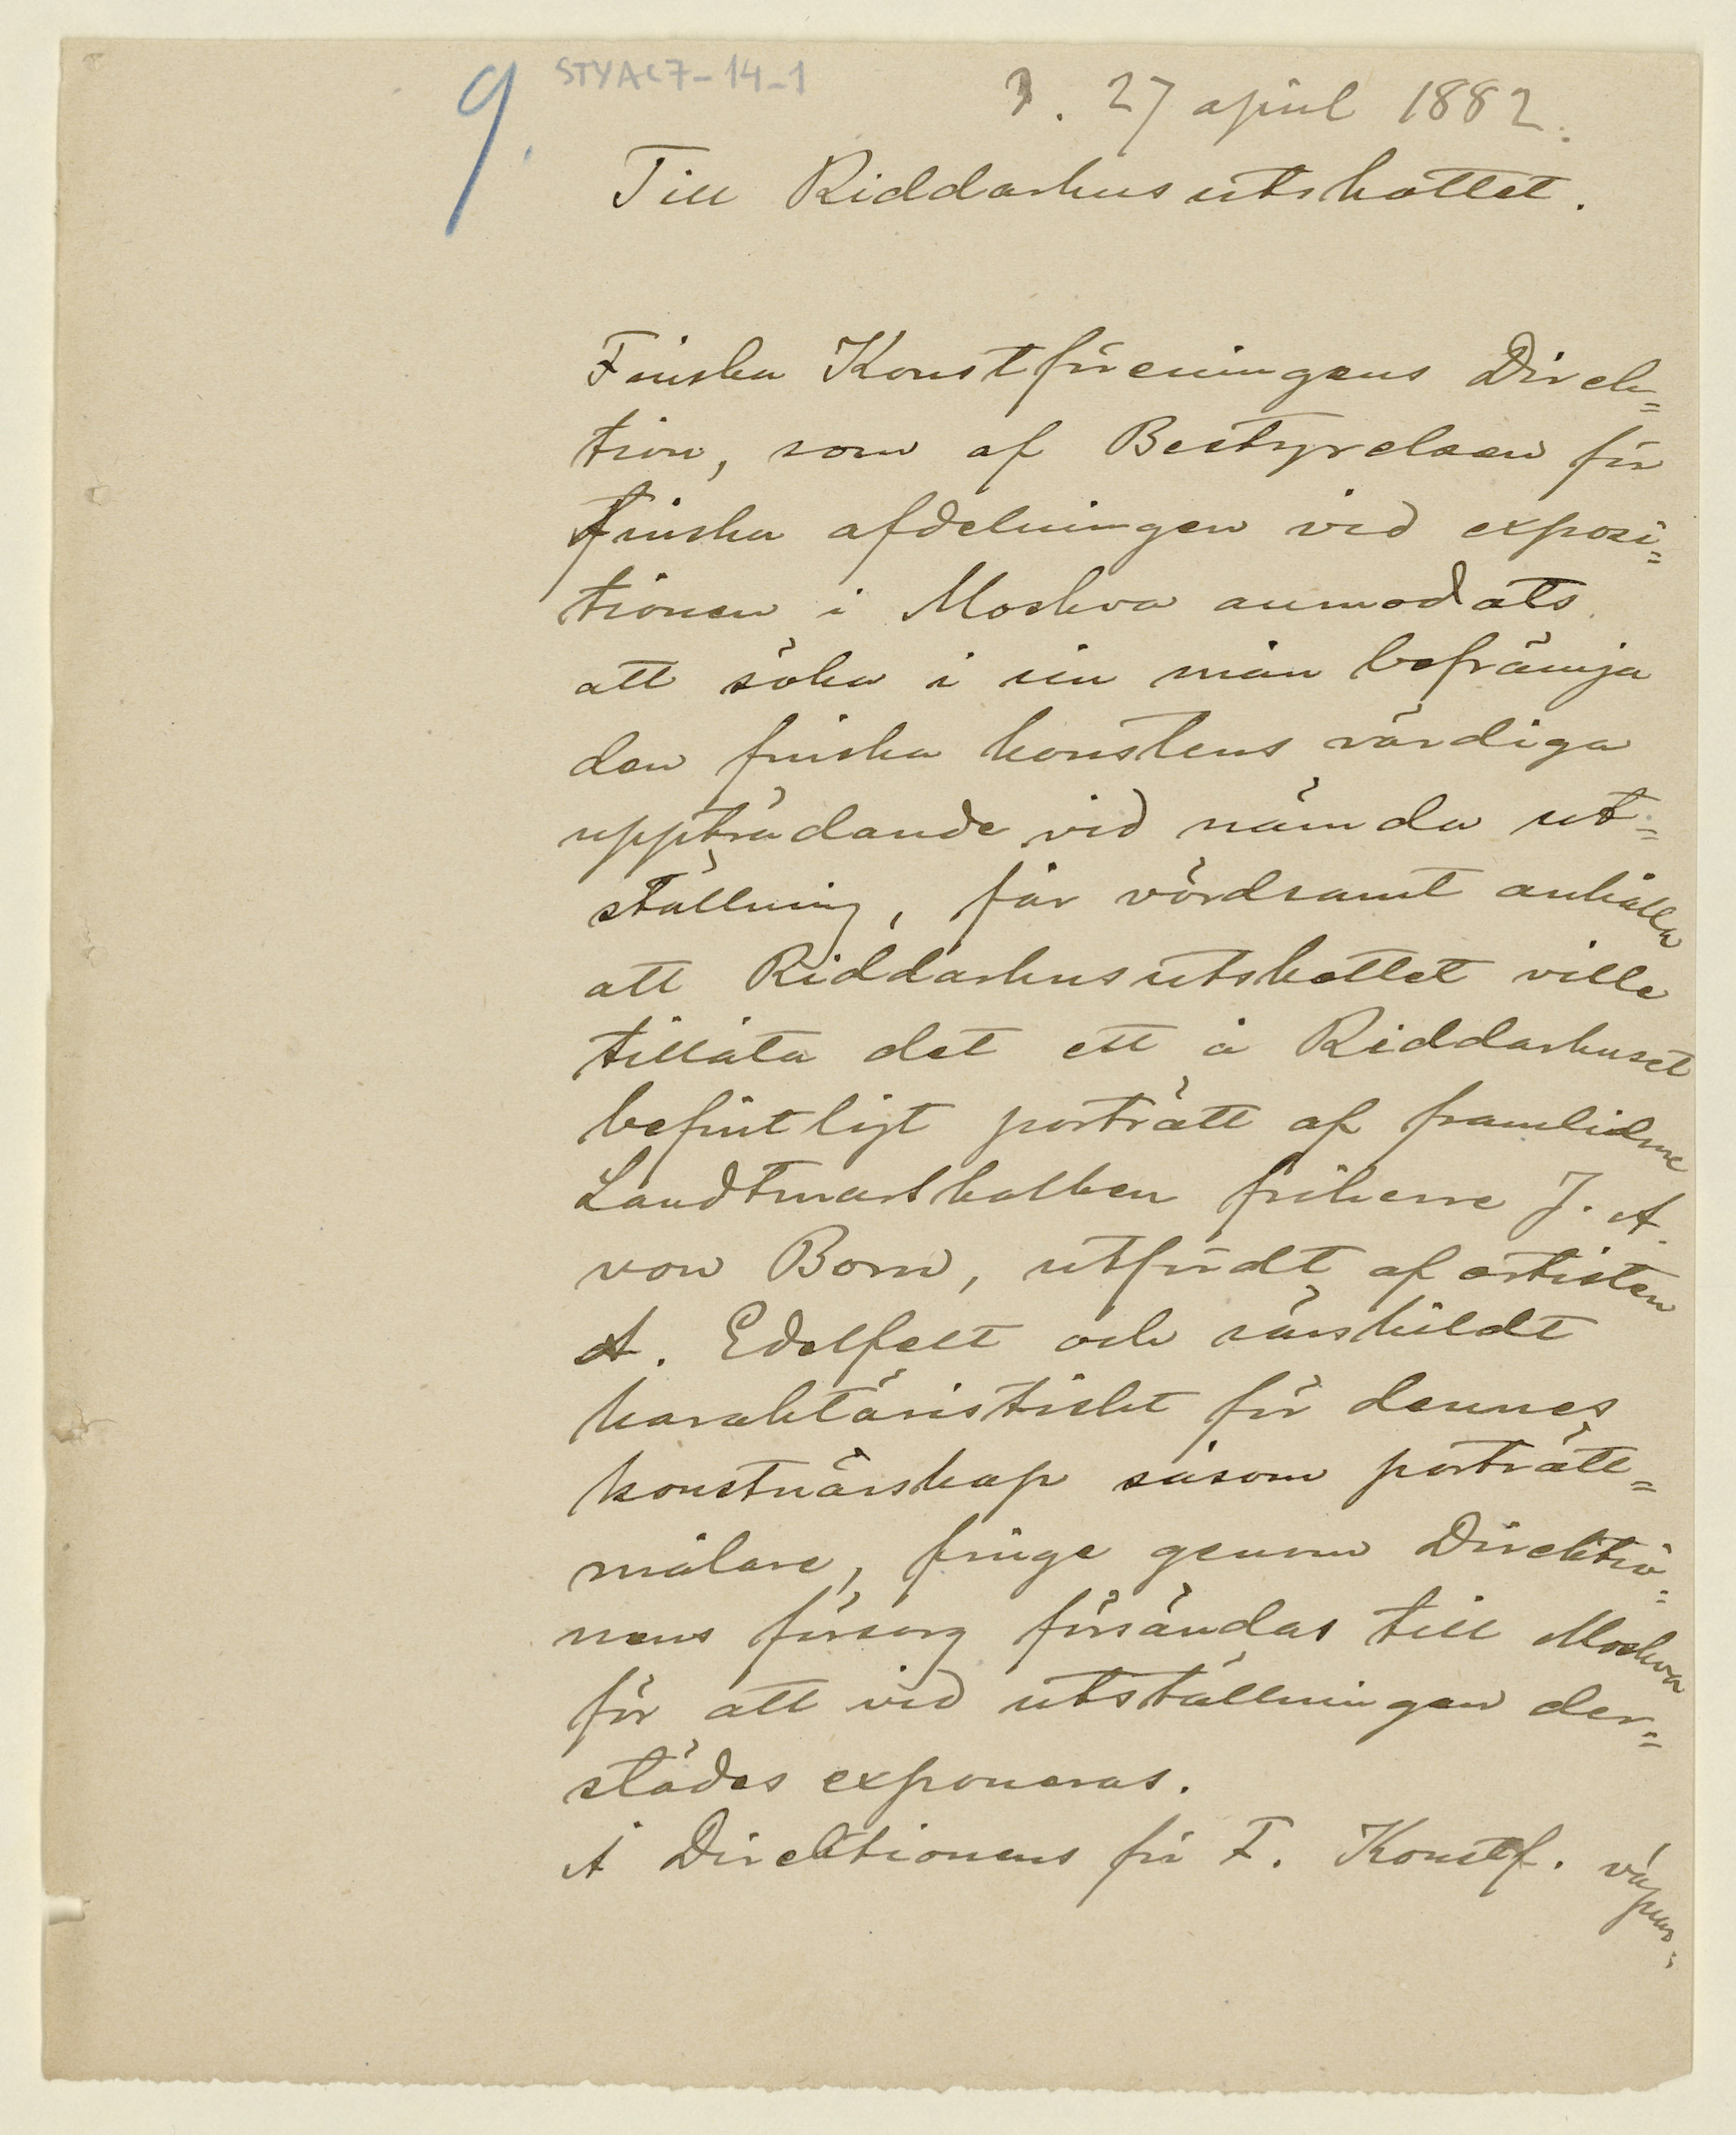 9. STYAC7-14-1
27 april 1882.
Till Riddarhusutskottet.
Finska Konstföreningens Direk=
tion, som af Bestyrelsen för
finska afdelningen vid exposi=
tionen i Moskva anmodats
att söka i sin mån befrämja
den finska konstens värdiga
uppträdande vid nämda ut=
ställning, får vördsamt anhålla
att Riddarhusutskottet ville
tillåta det ett å Riddarhuset
befintligt porträtt af framlidne
Landtmarskalken friherre J. A.
von Born, utfördt af artisten
A. Edelfelt och särskildt
karaktäristiskt för dennes
konstnärskap såsom porträtt=
målare, finge genom Direktio=
nens försorg försändas till Moskva
för att vid utställningen der=
städes exponeras.
Å Direktionens för F. Konstf. vägnar: